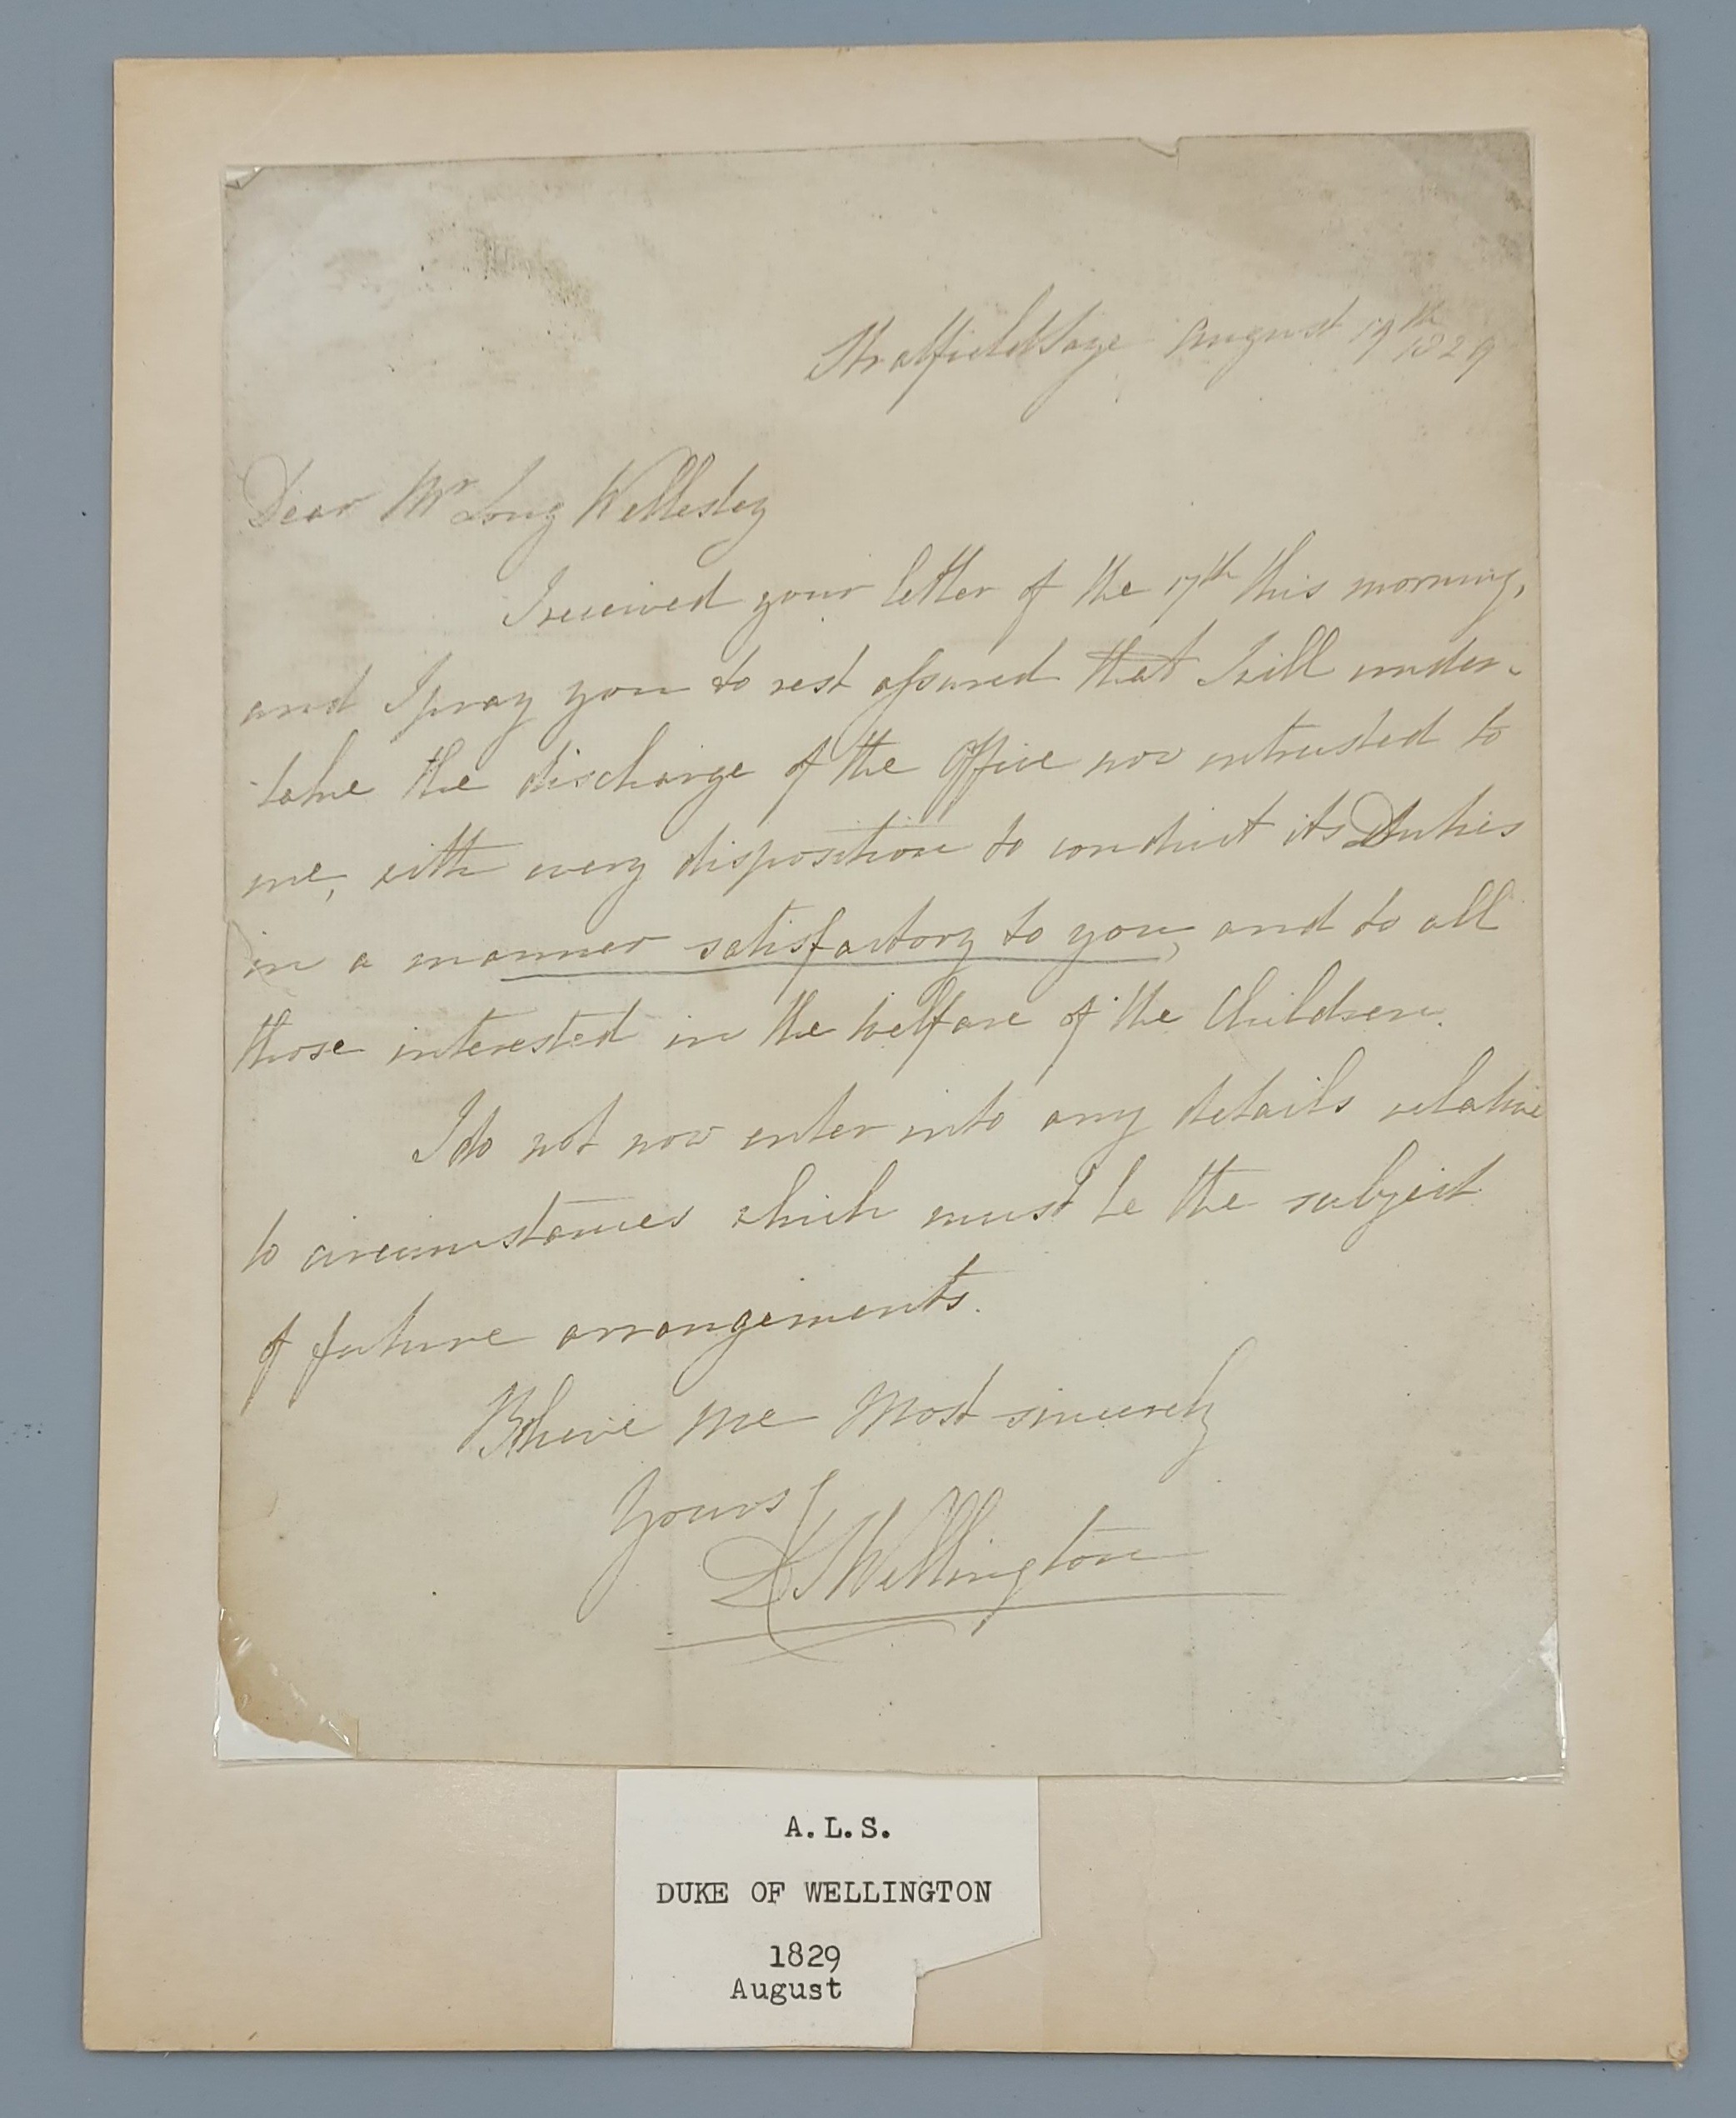 Stratfield Saye August 19th
1829
Dear Mr Long Wellesley
I received your letter of the 17th this morning,
and I pray you to rest assured that I will under-
take the discharge of the Office now intrusted to
me, with every disposition to conduct its Duties
in a manner satisfactory to you, and to all
those interested in the welfare of the Children.
I do not now enter into any details relative
to circumstances which must be the subject
of future arrangements.
Believe me Most sincerely
Yours
Wellington
A.L.S.
DUKE OF WELLINGTON
1829
August